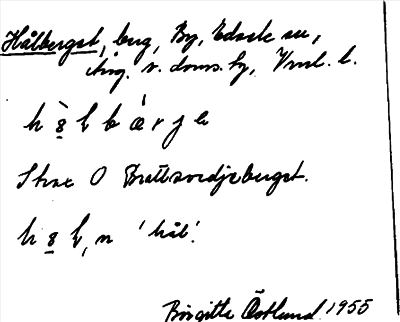 Hålberget, berg, By, Edsele sn,
Ång. v. doms. hg, Vnrl. l.
h 8̀ l b á r j e
Strax O Brattsvedjeberget.
h 8 l, n 'hål'.
Birgitta Östlund 1955